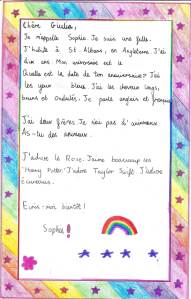 Chère Giulia,
Je m'appelle Sophie. Je suis une fille.
J'habite à St. Albans, en Angleterre. J'ai
dix ans. Mon anniversaire est le
Quelle est la date de ton anniversaire? J'ai
les yeux bleus. J'ai les cheveux longs,
bruns et ondulés. Je parle anglais et français
J'ai deux frères. Je n'ai pas d'animaux.
As-tu des animaux.
J'adore le Rose. J'aime beaucoup
"Harry Potter". J'adore Taylor Swift. J'adore
Ecris-moi bientôt!
Sophie!